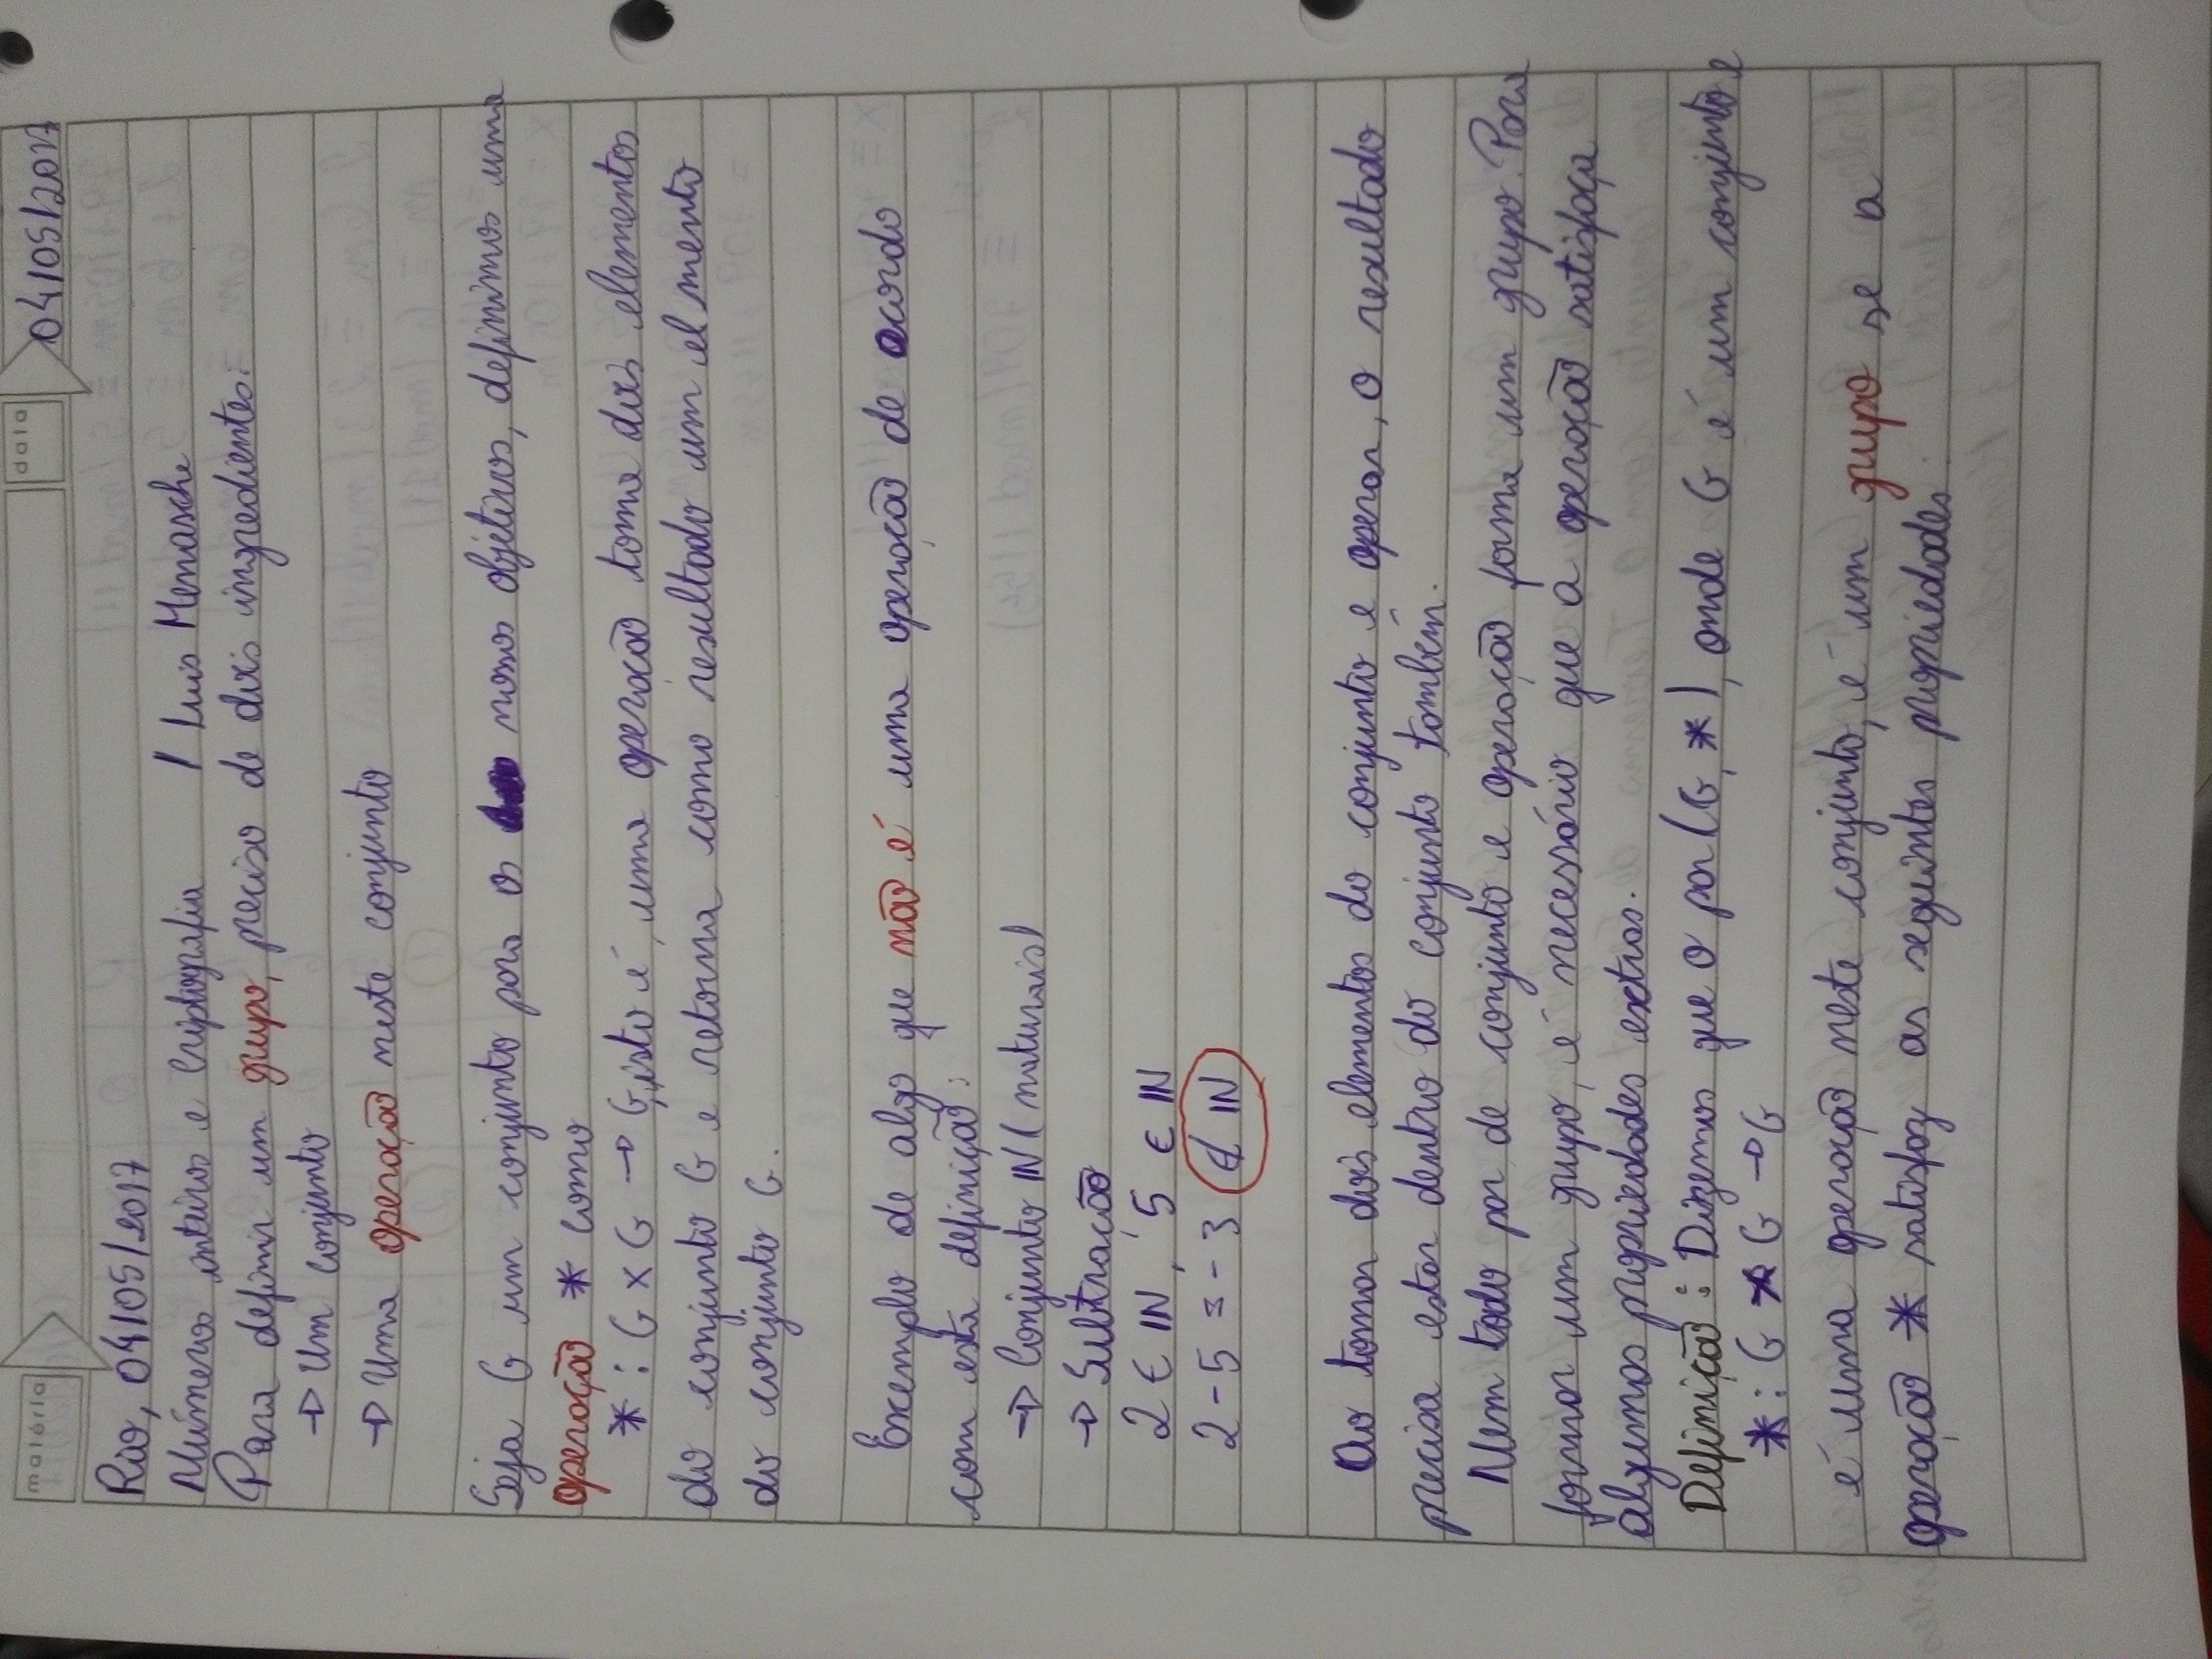 matéria
data
04/05/2017
Rio, 04/05/2017
Números inteiros e Criptografia / Luis Menasche
Para definir um grupo, preciso de dois ingredientes:
→ Um conjunto
→ Uma operação neste conjunto
Seja G um conjunto para os nossos objetivos, definimos uma
operação * como
* : G x G → G, isto é, uma operação toma dois elementos
do conjunto G e retorna como resultado um el mento
do conjunto G.
Exemplo de algo que não é uma operação de acordo
com esta definição:
→ Conjunto IN (naturais)
→ Subtração
2 ∈ IN, 5 ∈ IN
2 - 5 = - 3 ∉ IN
Ao tomar dois elementos do conjunto e operar, o resultado
precisa estar dentro do conjunto também.
Nem todo par de conjunto e operação forma um grupo. Para
formar um grupo, é necessário que a operação satisfaça
algumas propriedades extras.
Definição: Dizemos que o par (G, *), onde G é um conjunto e
* : G x G → G
é uma operação neste conjunto, é um grupo se a
operação * satisfaz as seguintes propriedades: